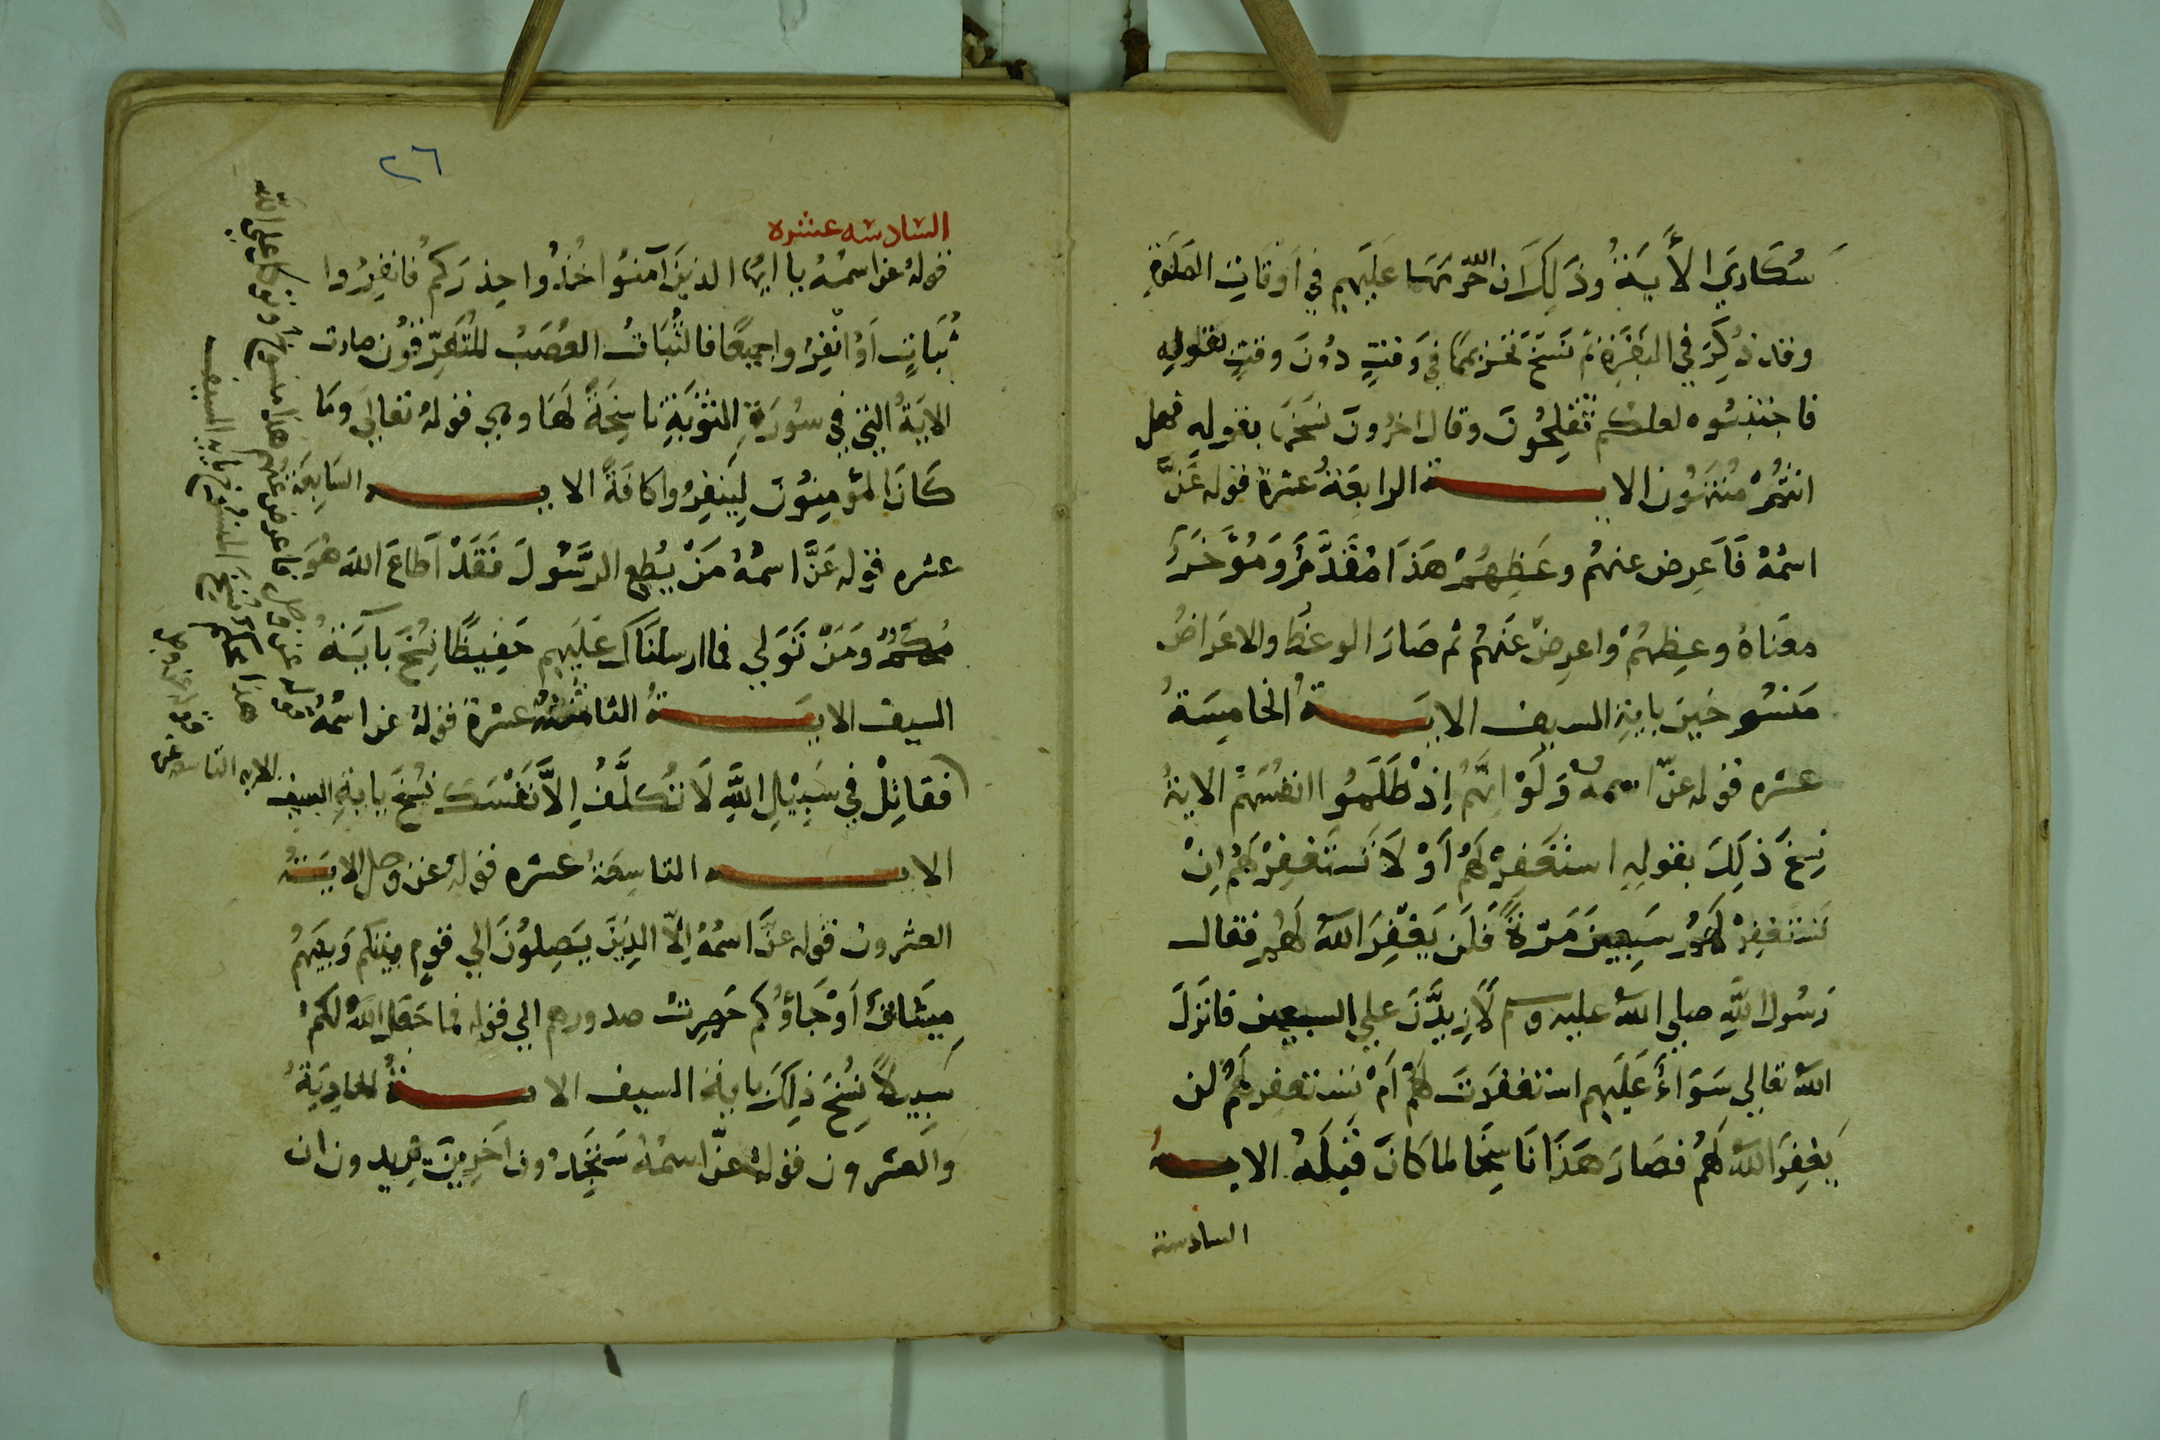 سُكَاري الأيَةُ وذَلِكَ ان الله حَرّمهَا عَلَيهم في اوقاتِ الصَلوةِ
وقد ذُكِرَ في البَقَرَةِ ثم نَسَخَ تحريمهَا في وَقتٍ دُونَ وقتٍ بقولِهِ
فاجتنبُوه لعلكم تُفلِحُونَ وقال اخرُونَ نَسَخَهَا بقولِهِ فهل
انتُمْ مُنتَهُون الايـــة الرابعَةُ عشرة قوله عَزَّ
اسمُهُ فَاَعرِض عنهُم وعَظِهُمْ هَذَا مُقَدَّمٌ وَمُؤخَّرٌ
معنَاهُ وعِظهُمْ واعرِضْ عَنهُم ثم صَارَ الوعظُ والاعرَاضُ
مَنسُوخَينِ بايةِ السيف الايَـــةُ الخامِسَةُ
عشره قوله عزّ اسمهُ وَلَوْ انّهُم إذْ ظَلَمُوا انفُسَهُم الايةُ
نِسخَ ذلِكَ بقولِهِ استَغفِرْ لهُم أَوْ لَا تَستَغفِرْ لهُم اِنْ
تَستغفِرْ لهُمْ سَبعِينَ مَرّةً فَلَن يَغفِرَ اللهُ لهُم فقال
رَسُول اللهِ صلي الله عليه وسم لأزيدَنَّ علي السبعين فانزَلَ
اللهُ تعالي سَوَاءٌ عَلَيهم استغفَرتَ لهُمْ أمْ لم تستغفِر لهُمْ لن
يَغفِرَ اللهُ لَهُم فصَارَ هَذَا نَاسِخًا لمَا كانَ قبلَهُ الايـــةُ
السادسة
٢٦
السادسه عشره
قولهُ عز اسمُهُ يا ايها الذينَ آمنُوا خُذُوا حِذرَكُم فانفِرُوا
ثُبَاتٍ اَوْ انْفِرُوا جميعًا فالثُّبَاتُ العُصَبُ المُتَفَرّقُون صارت
الايَةُ التي في سُورَةِ التوبَةِ ناسِخَةً لهَا وهي قولهُ تعالي ومَا
كَانَ المؤمِنُونَ لِيَنفِرُوا كافَةً الايـــه السَابعَة
عشره قوله عَزَّ اسمُهُ مَنْ يُطِع الرَّسُولَ فَقَدْ اَطَاعَ اللهَ هُوَ
مُحكَمٌ وَمَنْ تَوَلي فما ارسلنَاكَ عَلَيهم حَفِيظًا نُسِخَ بآيَةِ
السيف الايَـــةُ الثامنة عشرة قولهُ عز اسمُهُ
فقاتِلْ في سَبِيْلِ اللهِ لَا تُكَلَّفُ اِلاَّ نَفْسَكَ نُسِخَ بايةِ السيف
الايـــه التاسِعَةُ عشره قولهُ عز وجل الايَةُ
العشرون قوله عزَّ اسمُهُ اِلاّ الذِينَ يَصِلُونَ الي قومٍ بينكم وَبينَهُم
مِيثاقٌ أوْ جَاؤُكُم حَصِرَتْ صدورهم الي قوله فما جَعَلَ اللهُ لكم
سَبِيلاً نُسِخَ ذلِكَ بايَةِ السيف الايـــةُ الحادِيَةُ
والعشرون قولهُ عزّ اسمُهُ سَتجِدُونَ آخَرِينَ يُريدون ان
هذا منسوخ
الايه التاسعه عشر